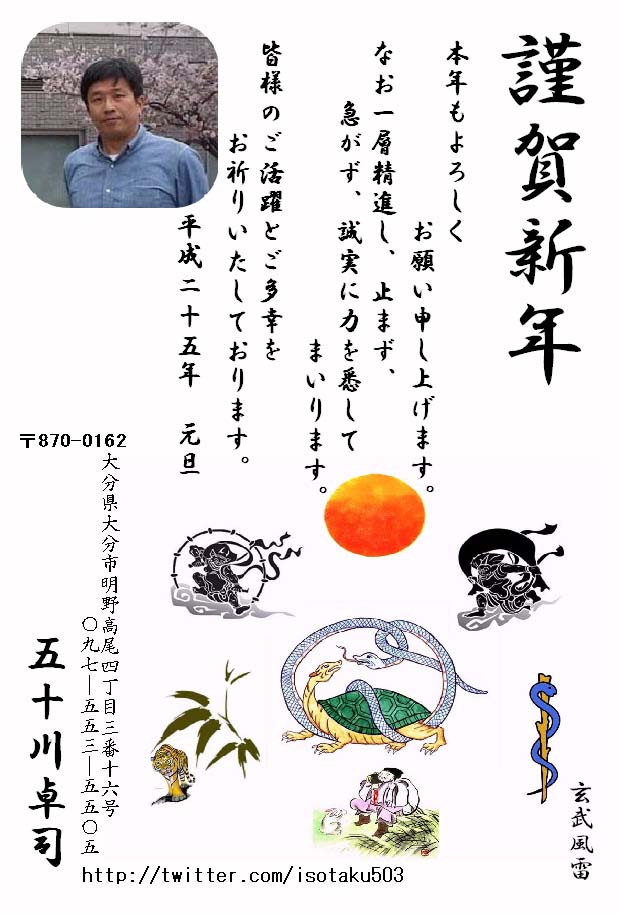 謹賀新年
本年もよろしく
お願い申し上げます。
なお一層精進し、止まず、
急がず、誠実に力を悉して
まいります。
皆様のご活躍とご多幸を
お祈りいたしております。
平成二十五年　元旦
〒870-0162
大分県大分市明野高尾四丁目三番十六号
〇九七―五五三―五五〇五
五十川卓司
http://twitter.com/isotaku503
玄武風雷